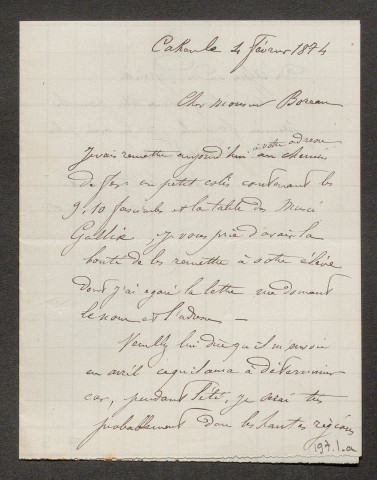 Cahan le 4 février 1874
Cher monsieur Boreau
Je vais remettre aujourd'hui à votre adresse au chemin
de fer un petit colis contenant les
9, 10 fascicules et la table des Musci
Galliæ, je vous prie d'avoir la
bonté de les remettre à votre élève
dont j'ai égaré la lettre me donnant
le nom et l'adresse —
Veuillez lui dire qu'il m'envoie
en avril ce qu'il aura à déterminer
car, pendant l'été, je serai très
probablement dans les hautes régions
197.1.a